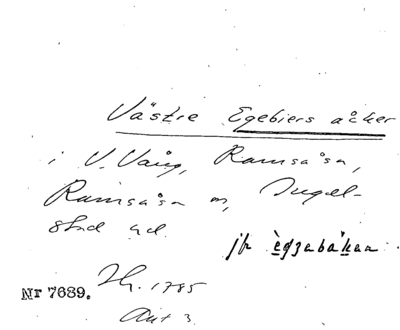 Västre Egebiers åcker
i V. Vång, Ramsåsa,
Ramsåsa sn, Ingel-
stad hd.
jfr
Nr 7689. Th. 1785
Akt 3